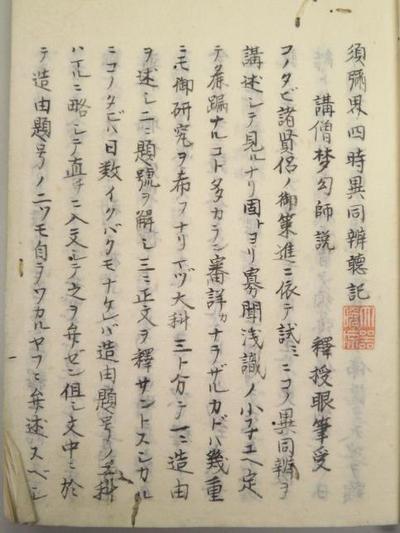 須彌界四時異同辨聴記
講僧梦勾師説　釋授眼筆受
コノタビ諸賢侶ノ御策進ニ依テ試ミニコノ異同辨ヲ
講述シテ見ルナリ固トヨリ寡聞浅識ノ小子ユヘ定
テ麁漏ナルコト多カラン審詳カナラザルカドハ幾重
ニモ御研究ヲ希フナリイヅ大科三ト分テ一ニ造由
ヲ述シ二ニ題號ヲ解シ三ニ正文ヲ釋サントスシカル
ニコノタビハ日数イクバクモナケレバ造由題号ノ二科
ハイルニ略シテ直チニ入文シテ之ヲ弁ゼン但シ文中ニ於
テ造由題号ノニツモ自ラツカルヤフニ弁述スベシ